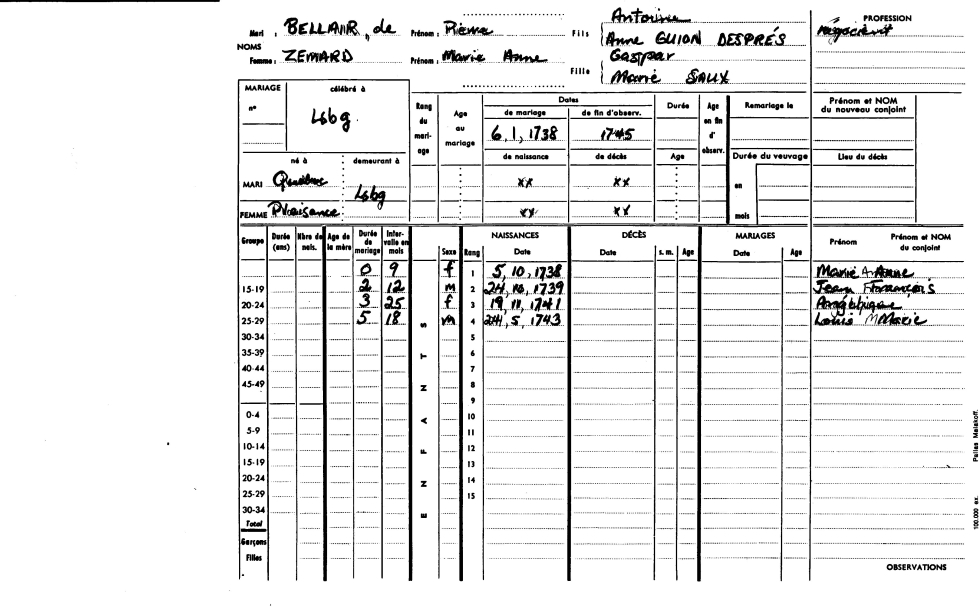 Mari : BELLAIR, de Prénom : Pierre Fils Antoine
Anne GUION DESPRÉS
PROFESSION
négociant
NOMS
Femme : ZEMARD Prénom : Marie Anne Fille Gaspar
Marie SAUX
MARIAGE célébré à
n° Lsbg
Rang du mari-age
Age au mariage
Dates
de mariage de fin d'observ.
6, 1, 1738 1745
Durée
Age en fin d' observ.
Remariage le
Prénom et NOM du nouveau conjoint
né à demeurant à
de naissance de décès Age
Durée du veuvage
Lieu du décès
MARI Québec xx xx en
Lsbg
FEMME Plaisance xx xx mois
Groupe Durée (ans) Nbre de nais. Age de la mère Durée de mariage Inter-valle en mois Sexe Rang NAISSANCES Date DÉCÈS Date s. m. Age MARIAGES Date Age Prénom Prénom et NOM du conjoint
0 9 f 1 5, 10, 1738 Marie Anne
15-19 2 12 m 2 24, 10, 1739 Jean François
20-24 3 25 f 3 19, 11, 1741
25-29 5 18 m 4 24, 5, 1743 Louis Marie
30-34 5
35-39 6
40-44 7
45-49 8
9
0-4 10
5-9 11
10-14 12
15-19 13
20-24 14
25-29 15
30-34
Total
Garçons
Filles
E N F A N T S
OBSERVATIONS
100.000 ex. Pallas Malakoff.